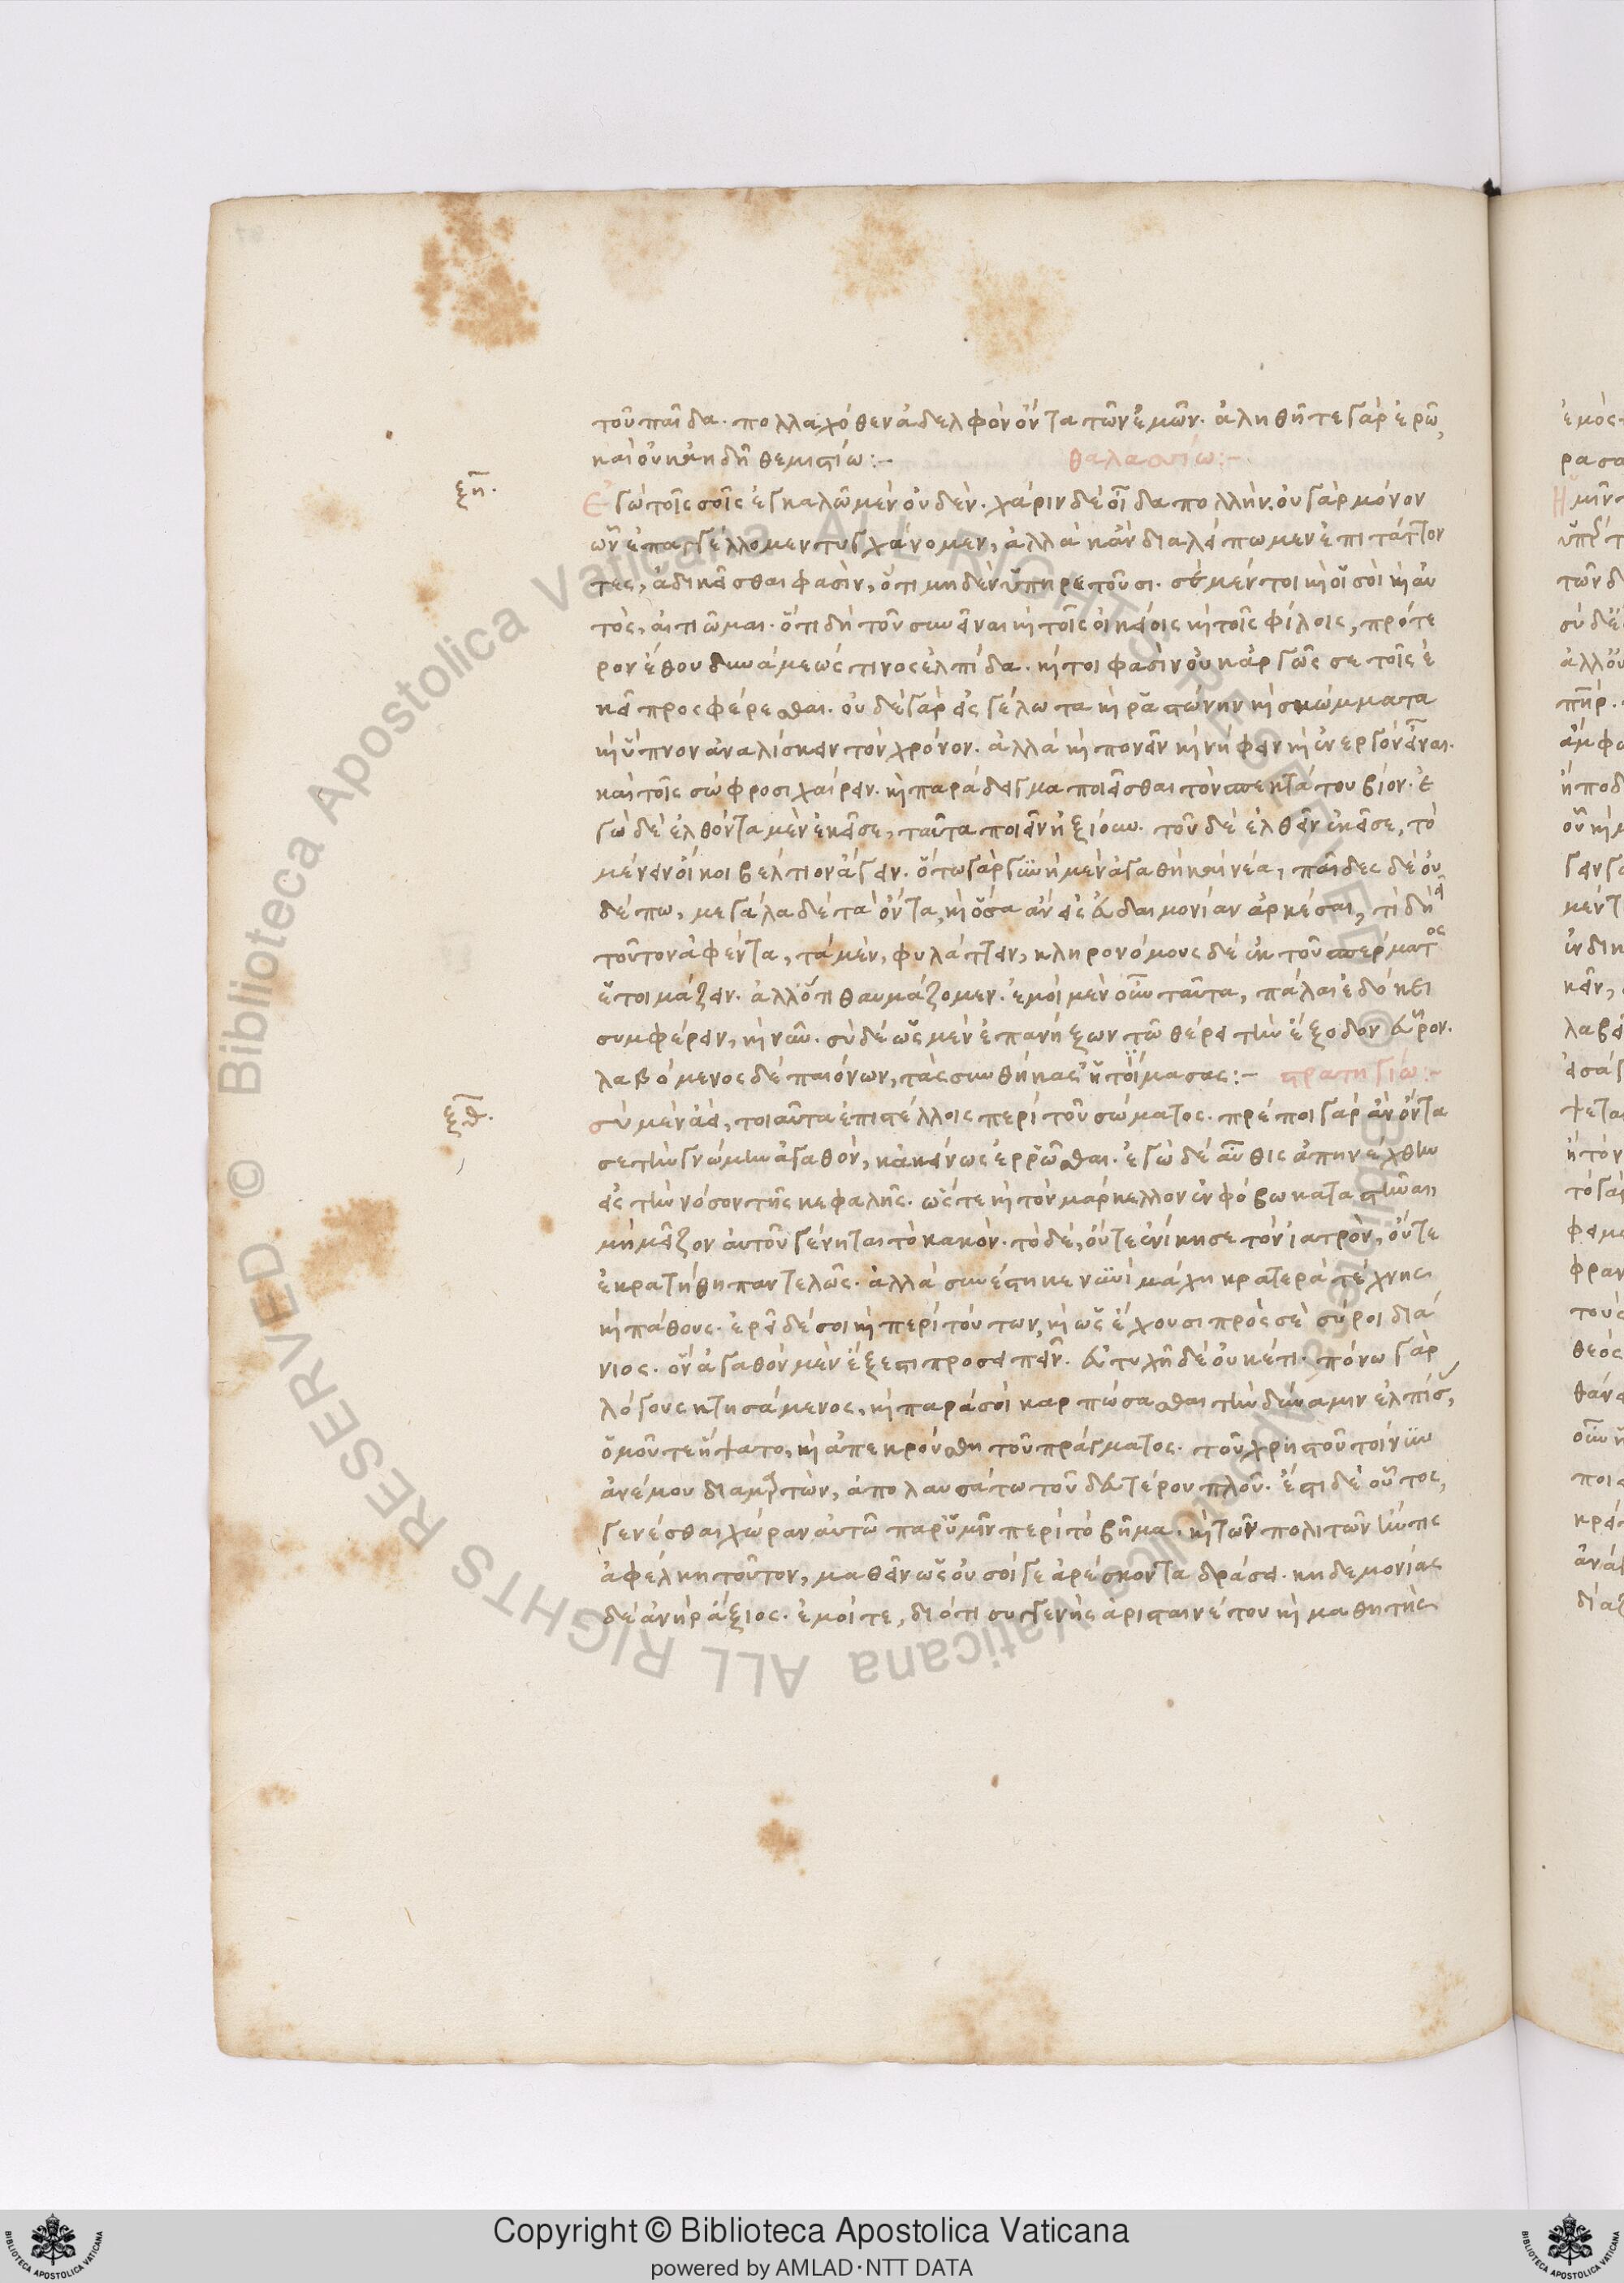 τοῦ παῖδα. πολλαχόθεν ἀδελφὸν ὄντα τῶν ἐμῶν. ἀληθῆ τε γὰρ ἐρῶ,
καὶ οὐκ ἀηδῆ θεμιστίω:-
θαλασσίω:-
ξη.
Ἐγὼ τοῖς σοῖς ἐγκαλῶ μὲν οὐδὲν. χάριν δὲ οἶδα πολλὴν. οὐ γὰρ μόνον
ὧν ἐπαγγέλλομεν τυγχάνομεν, ἀλλὰ κἂν διαλείπωμεν ἐπιτάττον
τες, ἀδικεῖσθαι φασὶν, ὅτι μηδὲν ὑπηρετοῦσι. σὲ μέντοι καὶ οἵ σοὶ καὶ αὐ
τὸς, αἰτιῶμαι. ὅτι δὴ τοῦ συνεῖναι καὶ τοῖς οἰκείοις καὶ τοῖς φίλοις, πρότε
ρον ἔθου δυνάμεώς τινος ἐλπίδα. καί τοι φασὶν οὐκ ἀργῶς σε τοῖς ἐ
κεῖ προσφέρεσθαι. οὐδὲ γὰρ εἰς γέλωτα καὶ ῥᾳστώνην καὶ σκώμματα
καὶ ὕπνον ἀναλίσκειν τὸν χρόνον. ἀλλὰ καὶ πονεῖν καὶ νήφειν καὶ ἐνεργὸν εἶναι.
καὶ τοῖς σώφροσι χαίρειν. καὶ παράδειγμα ποιεῖσθαι τὸν σπεκτάτου βίον. ἐ
γὼ δὲ ἐλθόντα μὲν ἐκεῖσε, ταῦτα ποιεῖν ἠξίουν. τοῦ δὲ ἐλθεῖν ἐκεῖσε, τὸ
μένειν οἴκοι βέλτιον ἄγειν. ὅτω γὰρ γυνὴ μὲν ἀγαθὴ καὶ νέα, παῖδες δὲ οὐ
δέπω, μεγάλα δὲ τὰ ὄντα, καὶ ὅσα ἂν εἰς εὐδαιμονίαν ἀρκέσαι, τί δεῖ
τοῦτον ἀφέντα, τὰ μὲν, φυλάττειν, κληρονόμους δὲ ἐκ τοῦ σπέρματος
ἑτοιμάζειν. ἀλλ' ὅτι θαυμάζομεν. ἐμοὶ μὲν οὖν ταῦτα, πάλαι ἐδόκει
συμφέρειν, καὶ νῦν. σὺ δὲ ὡς μὲν ἐπανήξων τῶ θέρει τὴν ἔξοδον εὗρον.
λαβόμενος δὲ παιόνων, τὰς συνθήκας ἠτοίμασας:- στρατηγίω:-
ξθ.
σὺ μὲν ἀεὶ, τοιαῦτα ἐπιστέλλοις περὶ τοῦ σώματος. πρέποι γὰρ ἂν ὄντα
σε τὴν γνώμην ἀγαθὸν, κἀκείνως ἐρρῶσθαι. ἐγὼ δὲ αὖθις ἀπηνέχθην
εἰς τὴν νόσον τῆς κεφαλῆς. ὥστε καὶ τὸν μάρκελλον ἐν φόβω καταστῆναι,
μὴ μεῖζον αὐτοῦ γένηται τὸ κακὸν. τὸ δὲ, οὔτε ἐνίκησε τὸν ἰατρὸν, οὔτε
ἐκρατήθη παντελῶς. ἀλλὰ συνέστηκε νυνὶ μάχη κρατερὰ τέχνης
καὶ πάθους. ἐρεῖ δέ σοι καὶ περὶ τούτων, καὶ ὡς ἔχουσι πρὸς σὲ σύροι διά
νιος. ὃν ἀγαθὸν μὲν ἔξεστι προσειπεῖν. εὐτυχῆ δὲ οὐκέτι. πόνω γὰρ
λόγους κτησάμενος, καὶ παρὰ σοὶ καρπώσασθαι τὴν δύναμιν ἐλπίσας,
ὁμοῦ τε ἥψατο, καὶ ἀπεκρούσθη τοῦ πράγματος. τοῦ χρηστοῦ τοίνυν
ἀνέμου διαμαρτὼν, ἀπολαυσάτω τοῦ δευτέρου πλοῦ. ἔστι δὲ οὗτος,
γενέσθαι χώραν αὐτῶ παρ' ὑμῖν περὶ τὸ βῆμα. καὶ τῶν πολιτῶν ἤν τις
ἀφέλκη τοῦτον, μαθεῖν ὡς οὐ σοί γε ἀρέσκοντα δράσει. κηδεμονίας
δὲ ἀνὴρ ἄξιος. ἐμοί τε, διότι συγγενὴς ἀρισταινέτου καὶ μαθητὴς
Copyright © Biblioteca Apostolica Vaticana
powered by AMLAD·NTT DATA